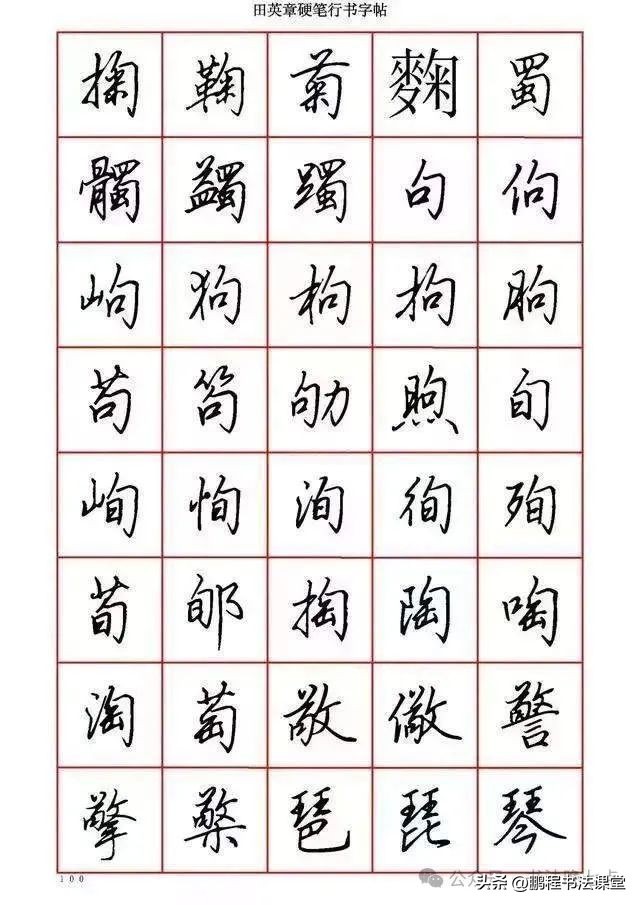 田英章硬笔行书字帖
掬 鞠 菊 麴 蜀
髑 蠲 躅 句 佝
岣 狗 枸 拘 朐
苟 笱 劬 煦 旬
峋 恂 洵 徇 殉
荀 郇 掏 陶 啕
淘 萄 敬 儆 警
擎 檠 琶 琵 琴
100
头条 @鹏程书法课堂